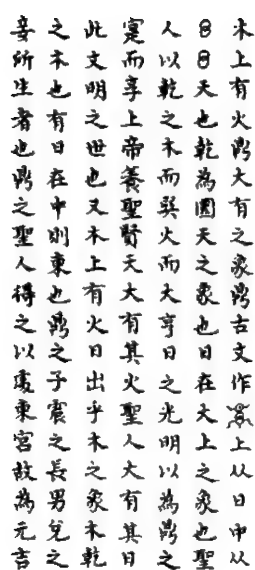 木上有火鼎大有之象鼎古文作上从日中从
日日天也乾為圜天之象也日在天上之象也聖
人以乾之木而巽火而大亨日之光明以為鼎之
寔而享上帝養聖賢天大有其火聖人大有其日
此文明之世也又木上有火日出乎木之象木乾
之木也有日在中則東也鼎之子震之長男兌之
妾所生者也鼎之聖人得之以處東宮故為元吉